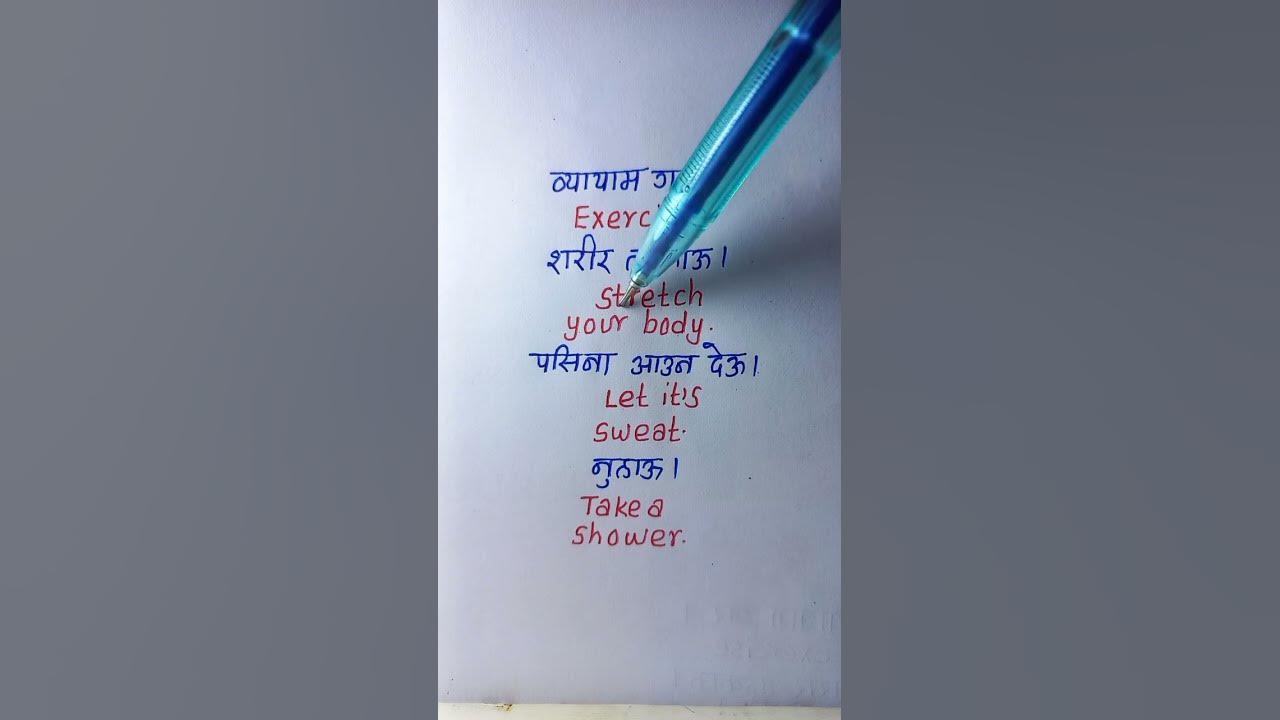 व्यायाम
शरीर
Stretch
your body.
पसिना आउन देऊ।
Let it's
sweat.
नुहाऊ।
Take a
shower.